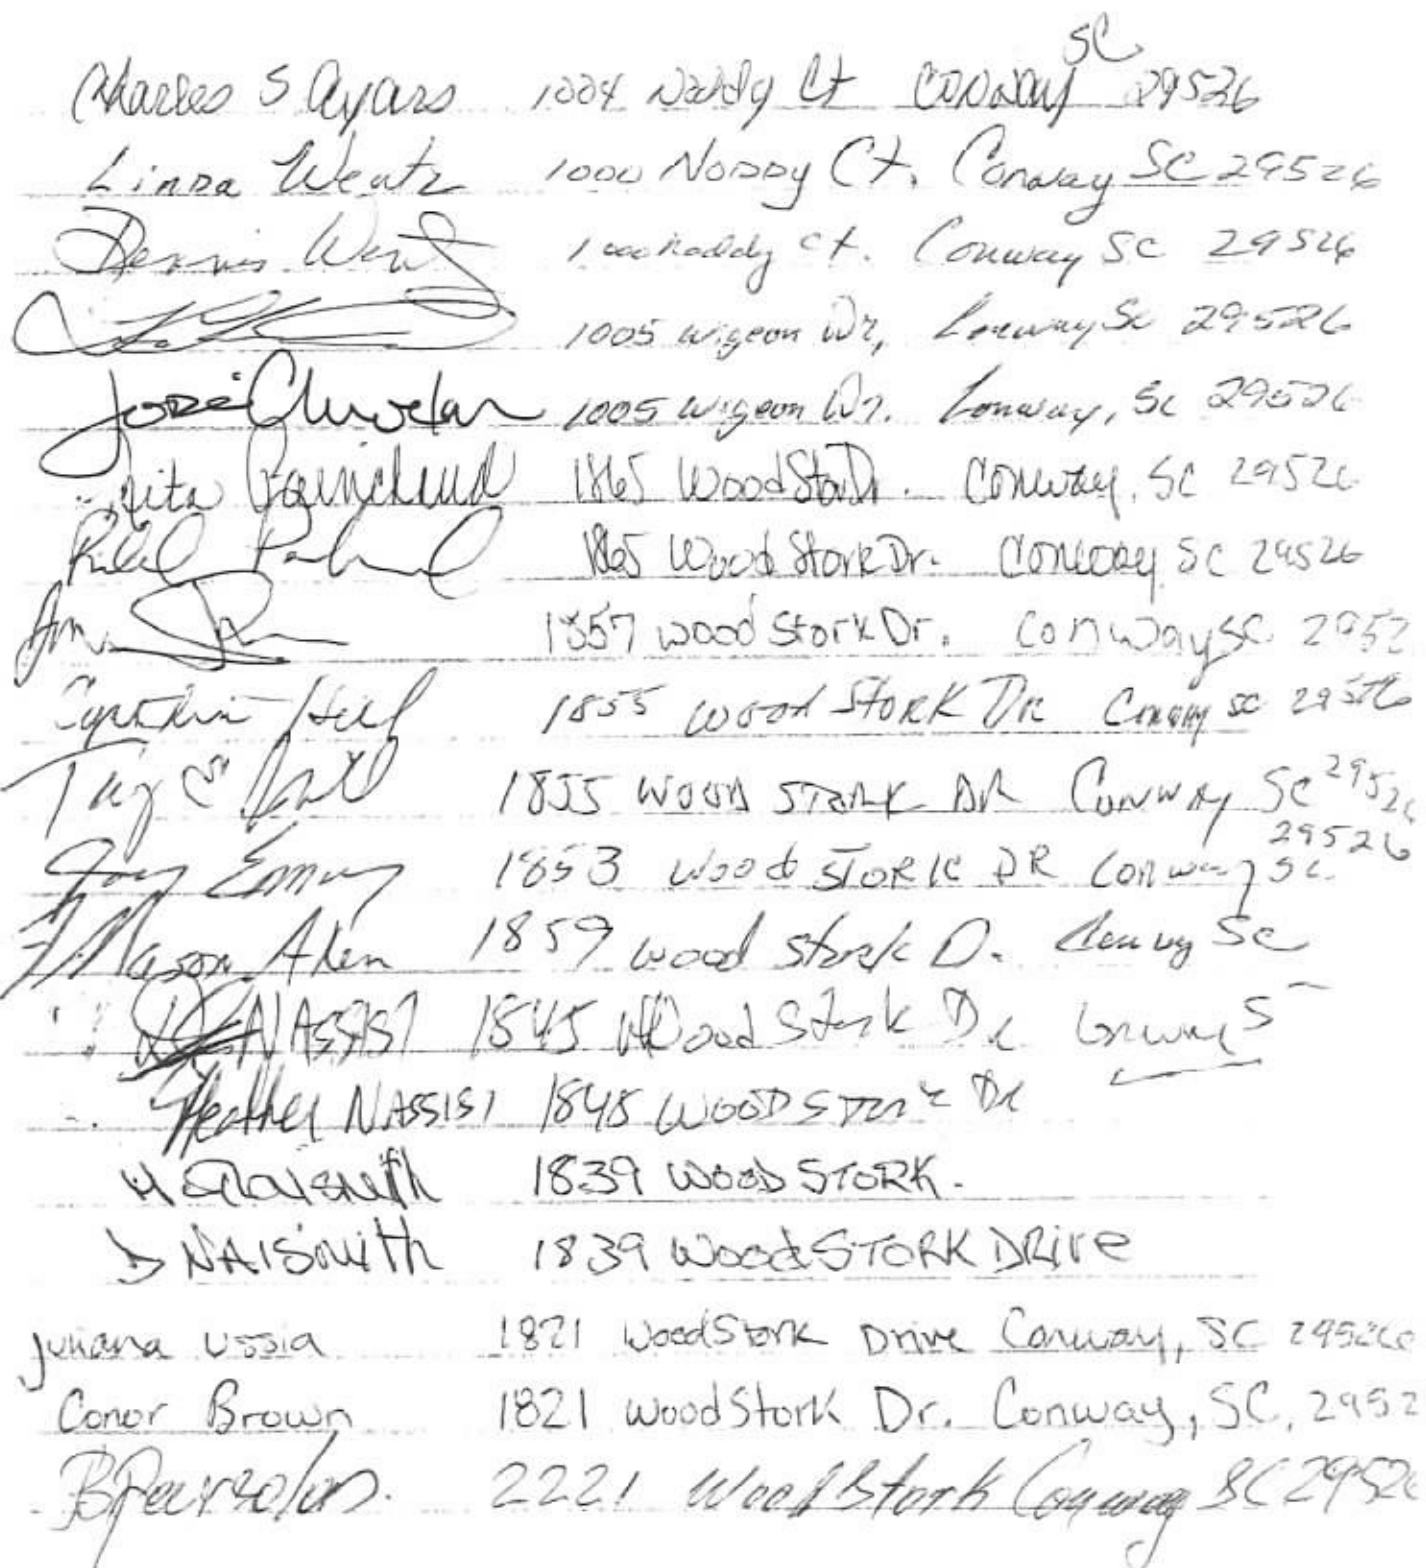 Charles S Ayars 1004 Noddy Ct Conway SC 29526
Linda Wentz 1000 Noddy Ct. Conway SC 29526
Dennis Wentz 1000 Noddy Ct. Conway SC 29526
1005 Wigeon Dr, Conway Sc 29526
José 1005 Wigeon Dr. Conway, Sc 29526
Rita 1865 Wood Stork Dr. Conway, SC 29526
1865 Wood Stork Dr. Conway SC 29526
1857 Wood Stork Dr. Conway SC 2952
Cynthia Hill 1855 Wood Stork Dr Conway SC 29526
1855 Wood Stork DR Conway SC 29526
Emory 1853 Wood Stork DR Conway SC. 29526
Mason Aken 1859 Wood Stork D. Conway Sc
NASSISI 1845 Wood Stork Dr Conway S
Heather NASSISI 1845 WOOD STORK Dr
Naismith 1839 WOOD STORK.
D NAISMITH 1839 Wood STORK DRive
Juliana Ussia 1821 Wood Stork Drive Conway, SC 29526
Conor Brown 1821 Wood Stork Dr. Conway, SC, 2952
2221 Wood Stork Conway SC 2952